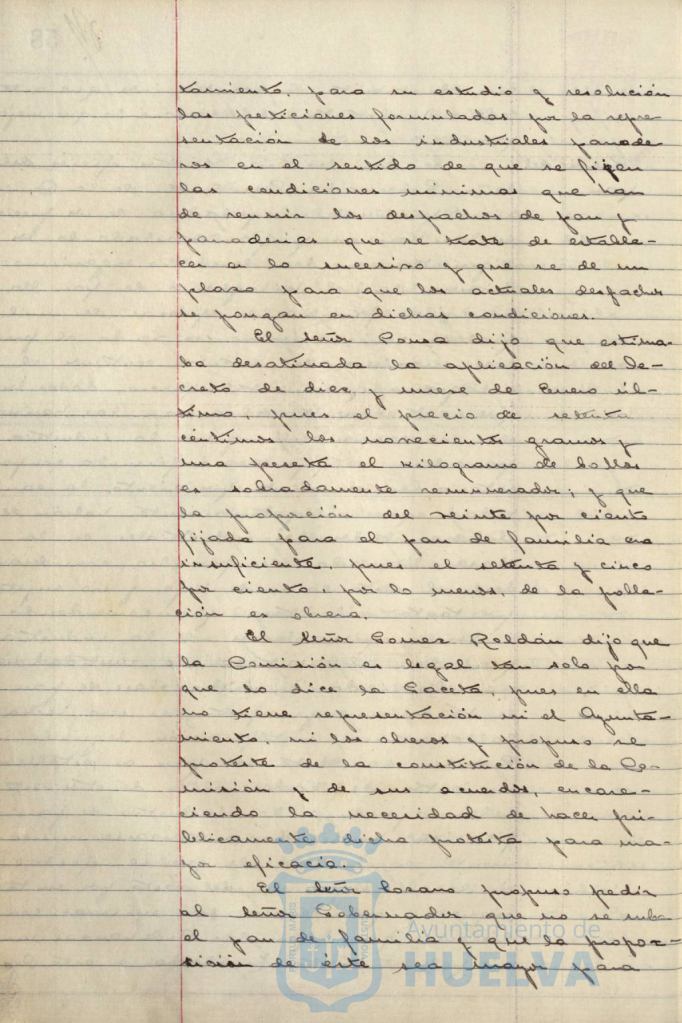 tamiento, para su estudio y resolución
las peticiones formuladas por la repre-
sentación de los industriales panade
ros en el sentido de que se fijen
las condiciones minimas que han
de reunir los despachos de pan y
panaderias que se trate de estable-
cer en lo sucesivo y que se de un
plazo para que los actuales despachos
se pongan en dichas condiciones.
El Señor Ponsa dijo que estima-
ba desatinada la aplicación del De-
creto de diez y nueve de Enero úl-
timo, pues el precio de setenta
céntimos los novecientos gramos y
una peseta el kilogramo de bollos
es sobradamente remunerador; y que
la proporción del veinte por ciento
fijada para el pan de familia era
insuficiente, pues el setenta y cinco
por ciento, por lo menos, de la pobla-
ción es obrera.
El Señor Gomez Roldán dijo que
la Comisión es legal tan solo por
que lo dice la Gaceta, pues en ella
no tiene representación ni el Ayunta-
miento, ni los obreros y propuso se
proteste de la constitución de la Co-
misión y de sus acuerdos, encare-
ciendo la necesidad de hacer pú-
blicamente dicha protesta para ma-
yor eficacia.
El Señor Lozano propuso pedir
al Señor Gobernador que no se suba
el pan de familia y que la propor-
ción de éste sea mayor para
Ayuntamiento de
HUELVA